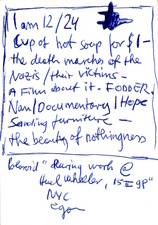 1 am 12/24
Cup of hot soup for $1-
the death marches of the
Nazis / their victims -
A Film about it - FODDER
New / Documentary | Hope
Sanding furniture -
the beauty of nothingness
"during work @
Wheeler, 15 E 9P"
NYC